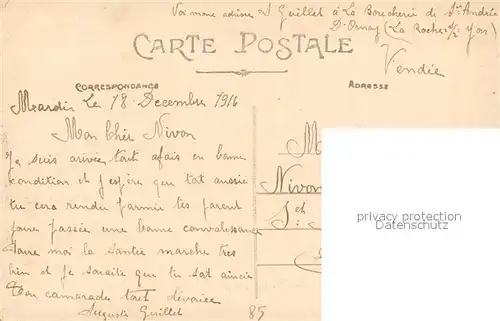 Voi mon adresse A Guillet à La Boucherie de St André
D'Ornay (La Roche s/ Yon)
Vendée
CARTE POSTALE
CORRESPONDANCE
ADRESSE
Meardis Le 18 Decembre 1916
Mon Chér Nivon
Je suis arrivée tout afais en bonne
condition et j'espére que tot aussie
tu cera rendu parmie tes parent
pour passée une bonne convalessance
Paure moi la santée marche tres
bien et Je souaite que tu sot ainsie
Ton camarade tout dévouée
Auguste Guillet
85
M
Nivon
St
privacy protection
Datenschutz